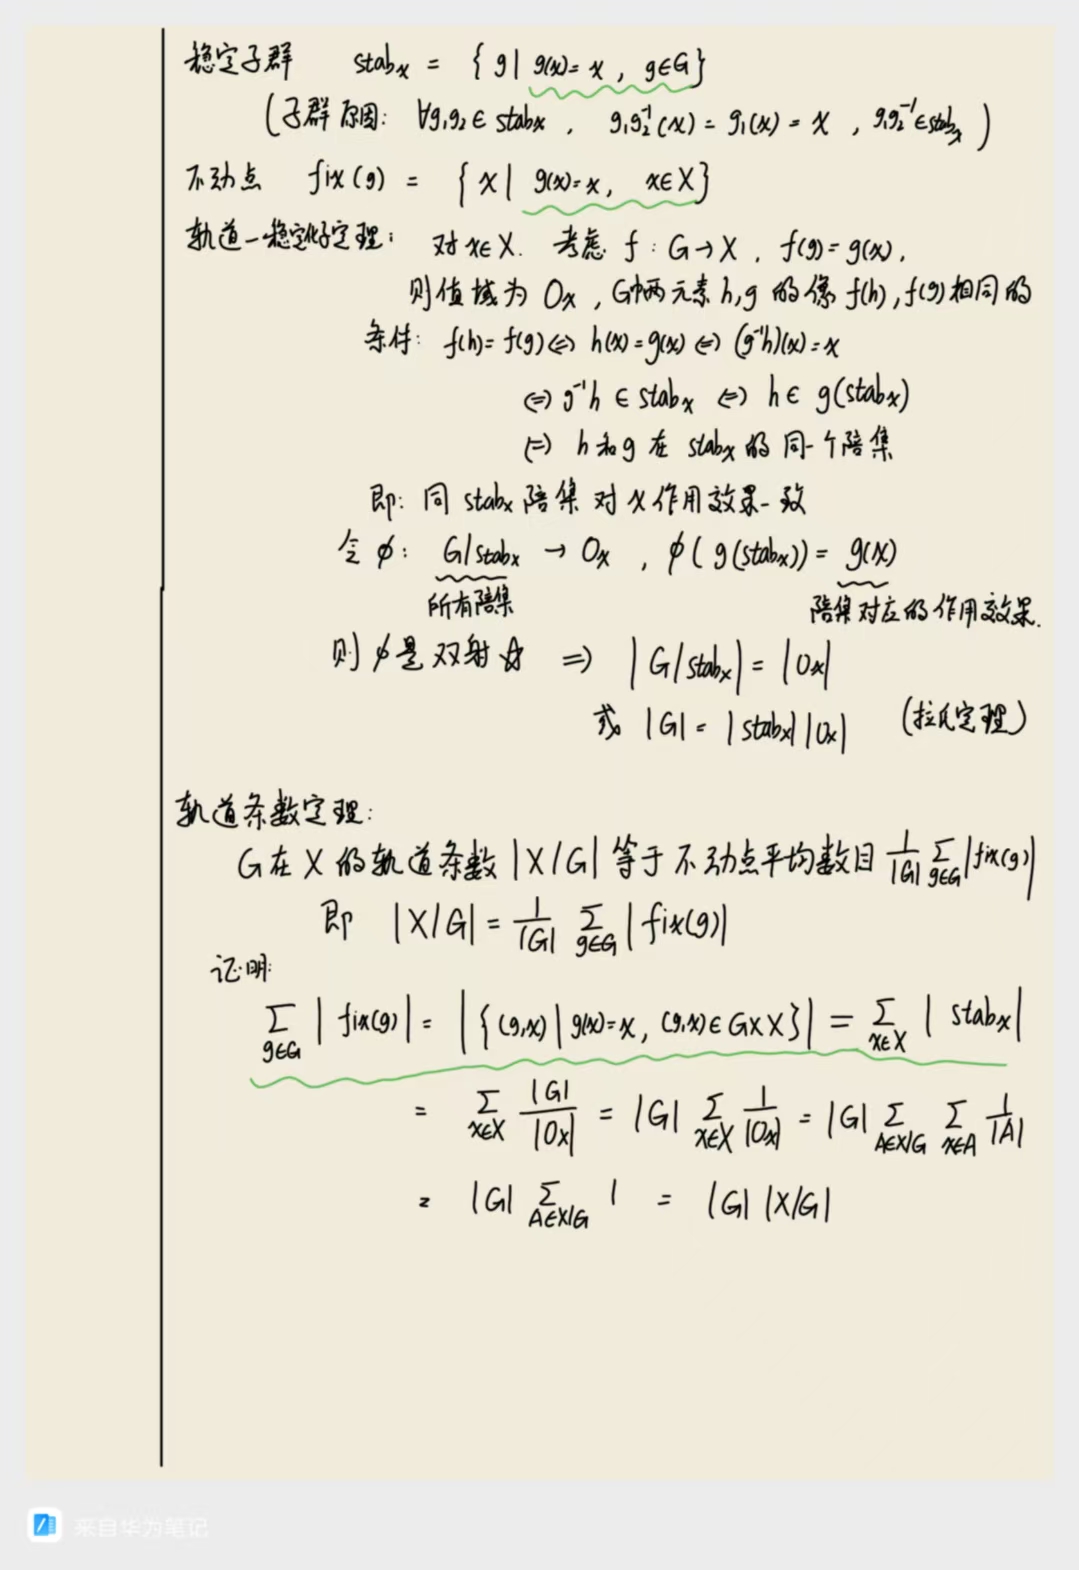 稳定子群 stabₓ = { g | g(x)=x , g∈G }
(子群原因: ∀g₁g₂∈ stabₓ , g₁g₂⁻¹(x) = g₁(x) = x , g₁g₂⁻¹∈stabₓ )
不动点 fix(g) = { x | g(x)=x, x∈X }
轨道-稳定化子定理: 对x∈X. 考虑 f : G→X , f(g)=g(x),
则值域为 Oₓ , G中两元素 h,g 的像 f(h),f(g)相同的
条件: f(h)=f(g)⇔ h(x)=g(x) ⇔ (g⁻¹h)(x)=x
⇔ g⁻¹h ∈ stabₓ ⇔ h∈ g(stabₓ)
⇔ h和g 在 stabₓ 的 同一个陪集
即: 同 stabₓ 陪集 对 x 作用效果一致
令 φ: G/stabₓ → Oₓ , φ( g(stabₓ)) = g(x)
所有陪集 陪集对应的作用效果.
则 φ是 双射 ☆ ⇒ |G/stabₓ| = |Oₓ|
或 |G| = |stabₓ||Oₓ| (拉氏定理)
轨道条数定理:
G在 X 的轨道条数 |X/G| 等于 不动点平均数目 1/|G| Σ_{g∈G} |fix(g)|
即 |X/G| = 1/|G| Σ_{g∈G} | fix(g)|
证明:
Σ_{g∈G} | fix(g)| = |{(g,x) | g(x)=x, (g,x)∈G×X}| = Σ_{x∈X} | stabₓ|
= Σ_{x∈X} |G|/|Oₓ| = |G| Σ_{x∈X} 1/|Oₓ| = |G| Σ_{A∈X/G} Σ_{x∈A} 1/|A|
= |G| Σ_{A∈X/G} 1 = |G| |X/G|
来自华为笔记